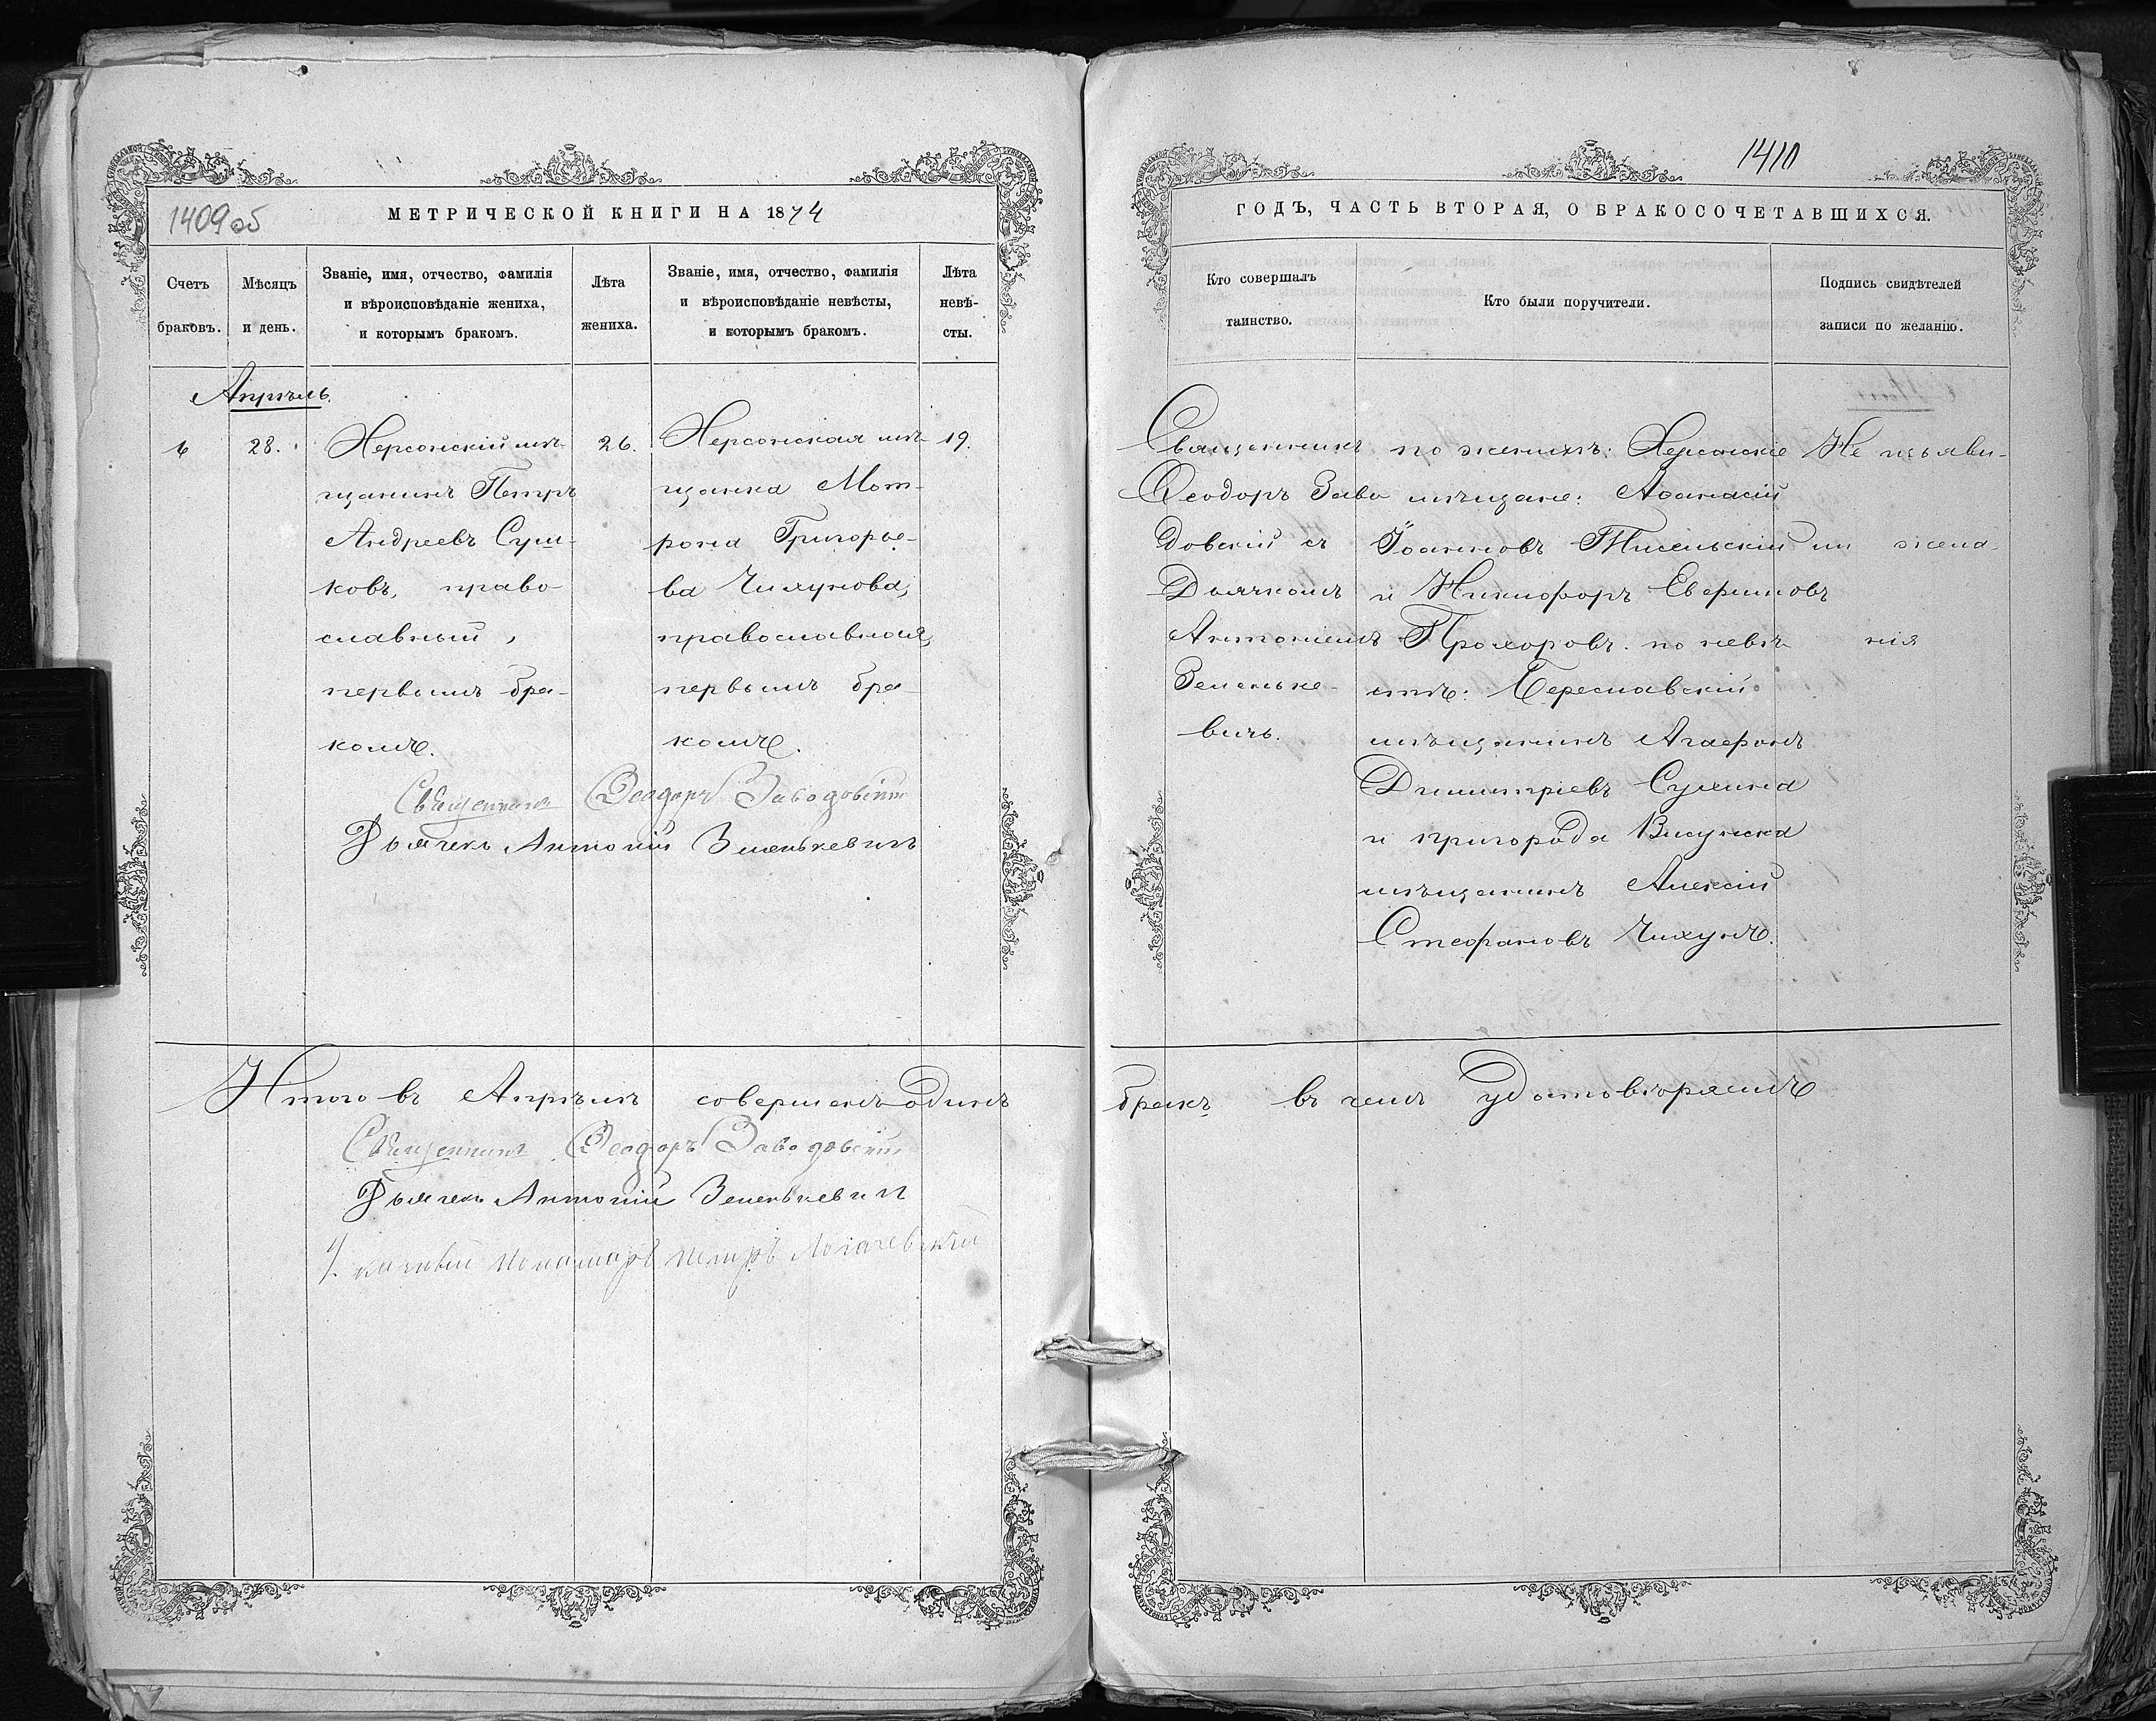 1409об
МЕТРИЧЕСКОЙ КНИГИ НА 1874
Счетъ браковъ.
Мѣсяцъ и день.
Званіе, имя, отчество, фамилія
и вѣроисповѣданіе жениха,
и которымъ бракомъ.
Лѣта жениха.
Званіе, имя, отчество, фамилія
и вѣроисповѣданіе невѣсты,
и которымъ бракомъ.
Лѣта невѣ-
сты.
Апрѣль.
28.
Херсонскій мѣ-
щанинъ Петръ
Андреевъ Суш-
ковъ, право-
славный,
первымъ бра-
комъ.
26.
Херсонская мѣ-
щанка Мат-
рона Григорье-
ва Чихунова,
православная,
первымъ бра-
комъ.
19.
Священникъ Ѳеодоръ Заводовскій
Дьячекъ Антоній Зеленкевичъ
Итого въ Апрѣлѣ совершенъ одинъ
Священникъ Ѳеодоръ Заводовскій
Дьячекъ Антоній Зеленкевичъ
Пономарь Петръ
1410
ГОДЪ, ЧАСТЬ ВТОРАЯ, О БРАКОСОЧЕТАВШИХСЯ.
Кто совершалъ
таинство.
Кто были поручители.
Подпись свидѣтелей
записи по желанію.
Священникъ
Ѳеодоръ Заво
довскій съ
Дьячкомъ
Антоніемъ
Зеленьке-
вичъ.
по женихѣ: Херсонскіе
мѣщане: Аѳанасій
Іоанновъ
и Никифоръ Евфимовъ
Прохоровъ. по невѣ-
стѣ: Бериславскій
мѣщанинъ Агафонъ
Димитріевъ Сухина
и пригорода Висунска
мѣщанинъ Алексій
Стефановъ Чихунъ.
Не изъяви-
ли жела-
нія
бракъ въ чемъ удостовѣряемъ